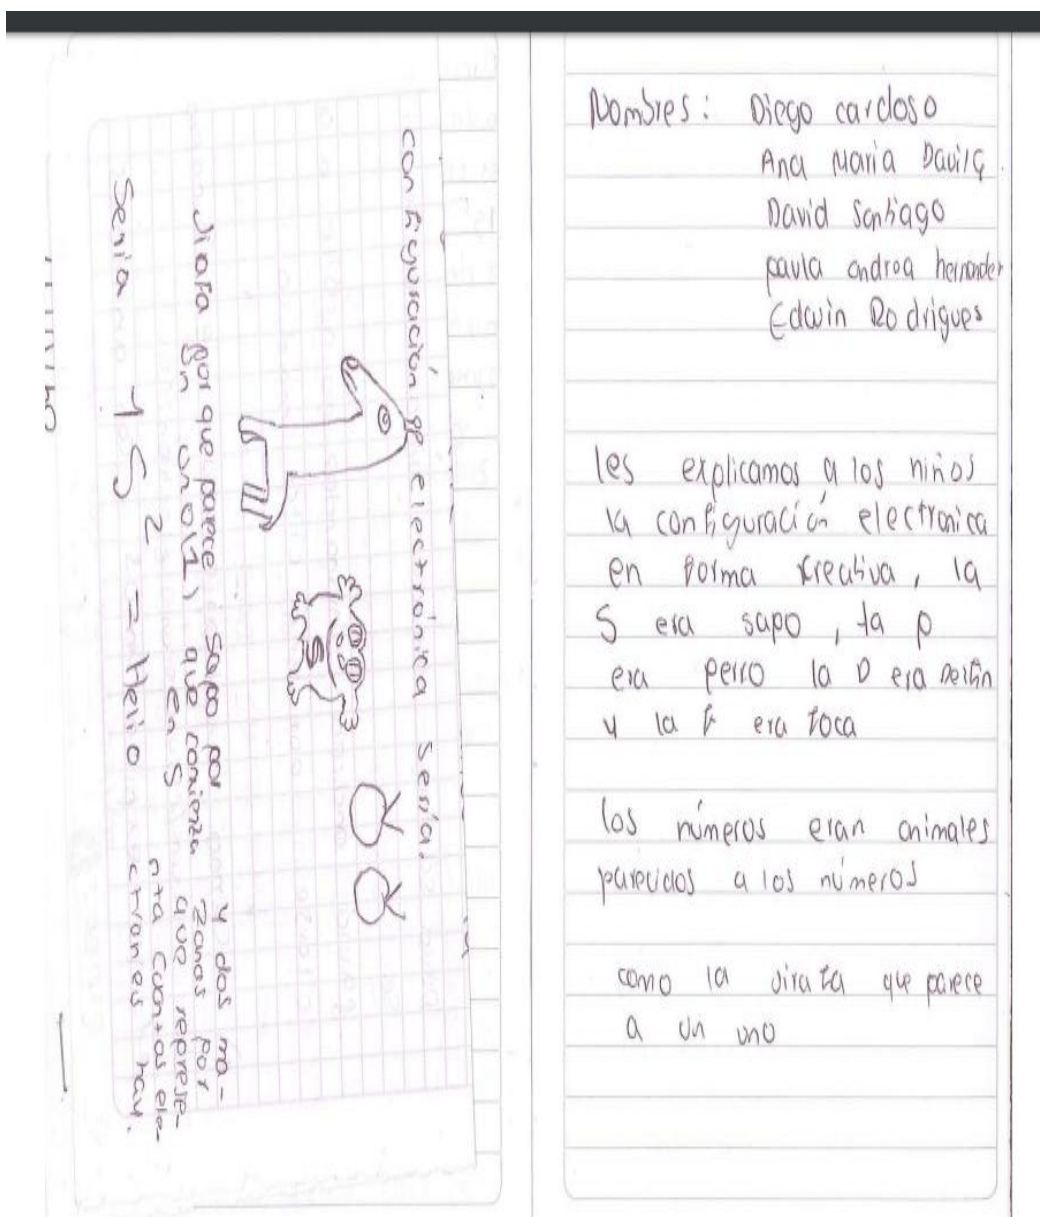 configuración electrónica sería.
Jirafa por que parece
un uno (1)
Sapo por
que comienza
en S
y dos ma-
zanas por
que represe-
nta cuantos ele-
ctrones hay.
Seria 1 S 2 = Helio
Nombres: Diego cardoso
Ana Maria Davila
David Santiago
paula androa hernander
Edwin Rodrigues
les explicamos a los niños
la configuración electronica
en forma creativa, la
S era sapo, la p
era perro la D era
y la f era foca
los números eran animales
parecidos a los números
como la jirafa que parece
a un uno